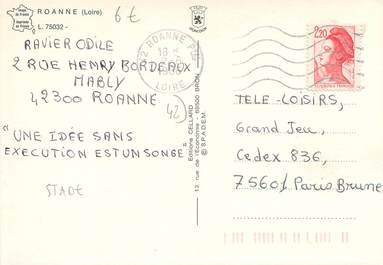 ROANNE (Loire)
L. 75032 -
6€
RAVIER ODILE
2 RUE HENRY BORDEAUX
MABLY
42300 ROANNE
42
"UNE IDÉE SANS
EXECUTION EST UN SONGE"
STADE
ROANNE
18 H
LOIRE
Editions CELLARD
13, rue de l'Economie - 69500 BRON
© S.P.A.D.E.M.
2,20
TELE-LOISIRS,
Grand Jeu,
Cedex 836,
75601 Paris Brune